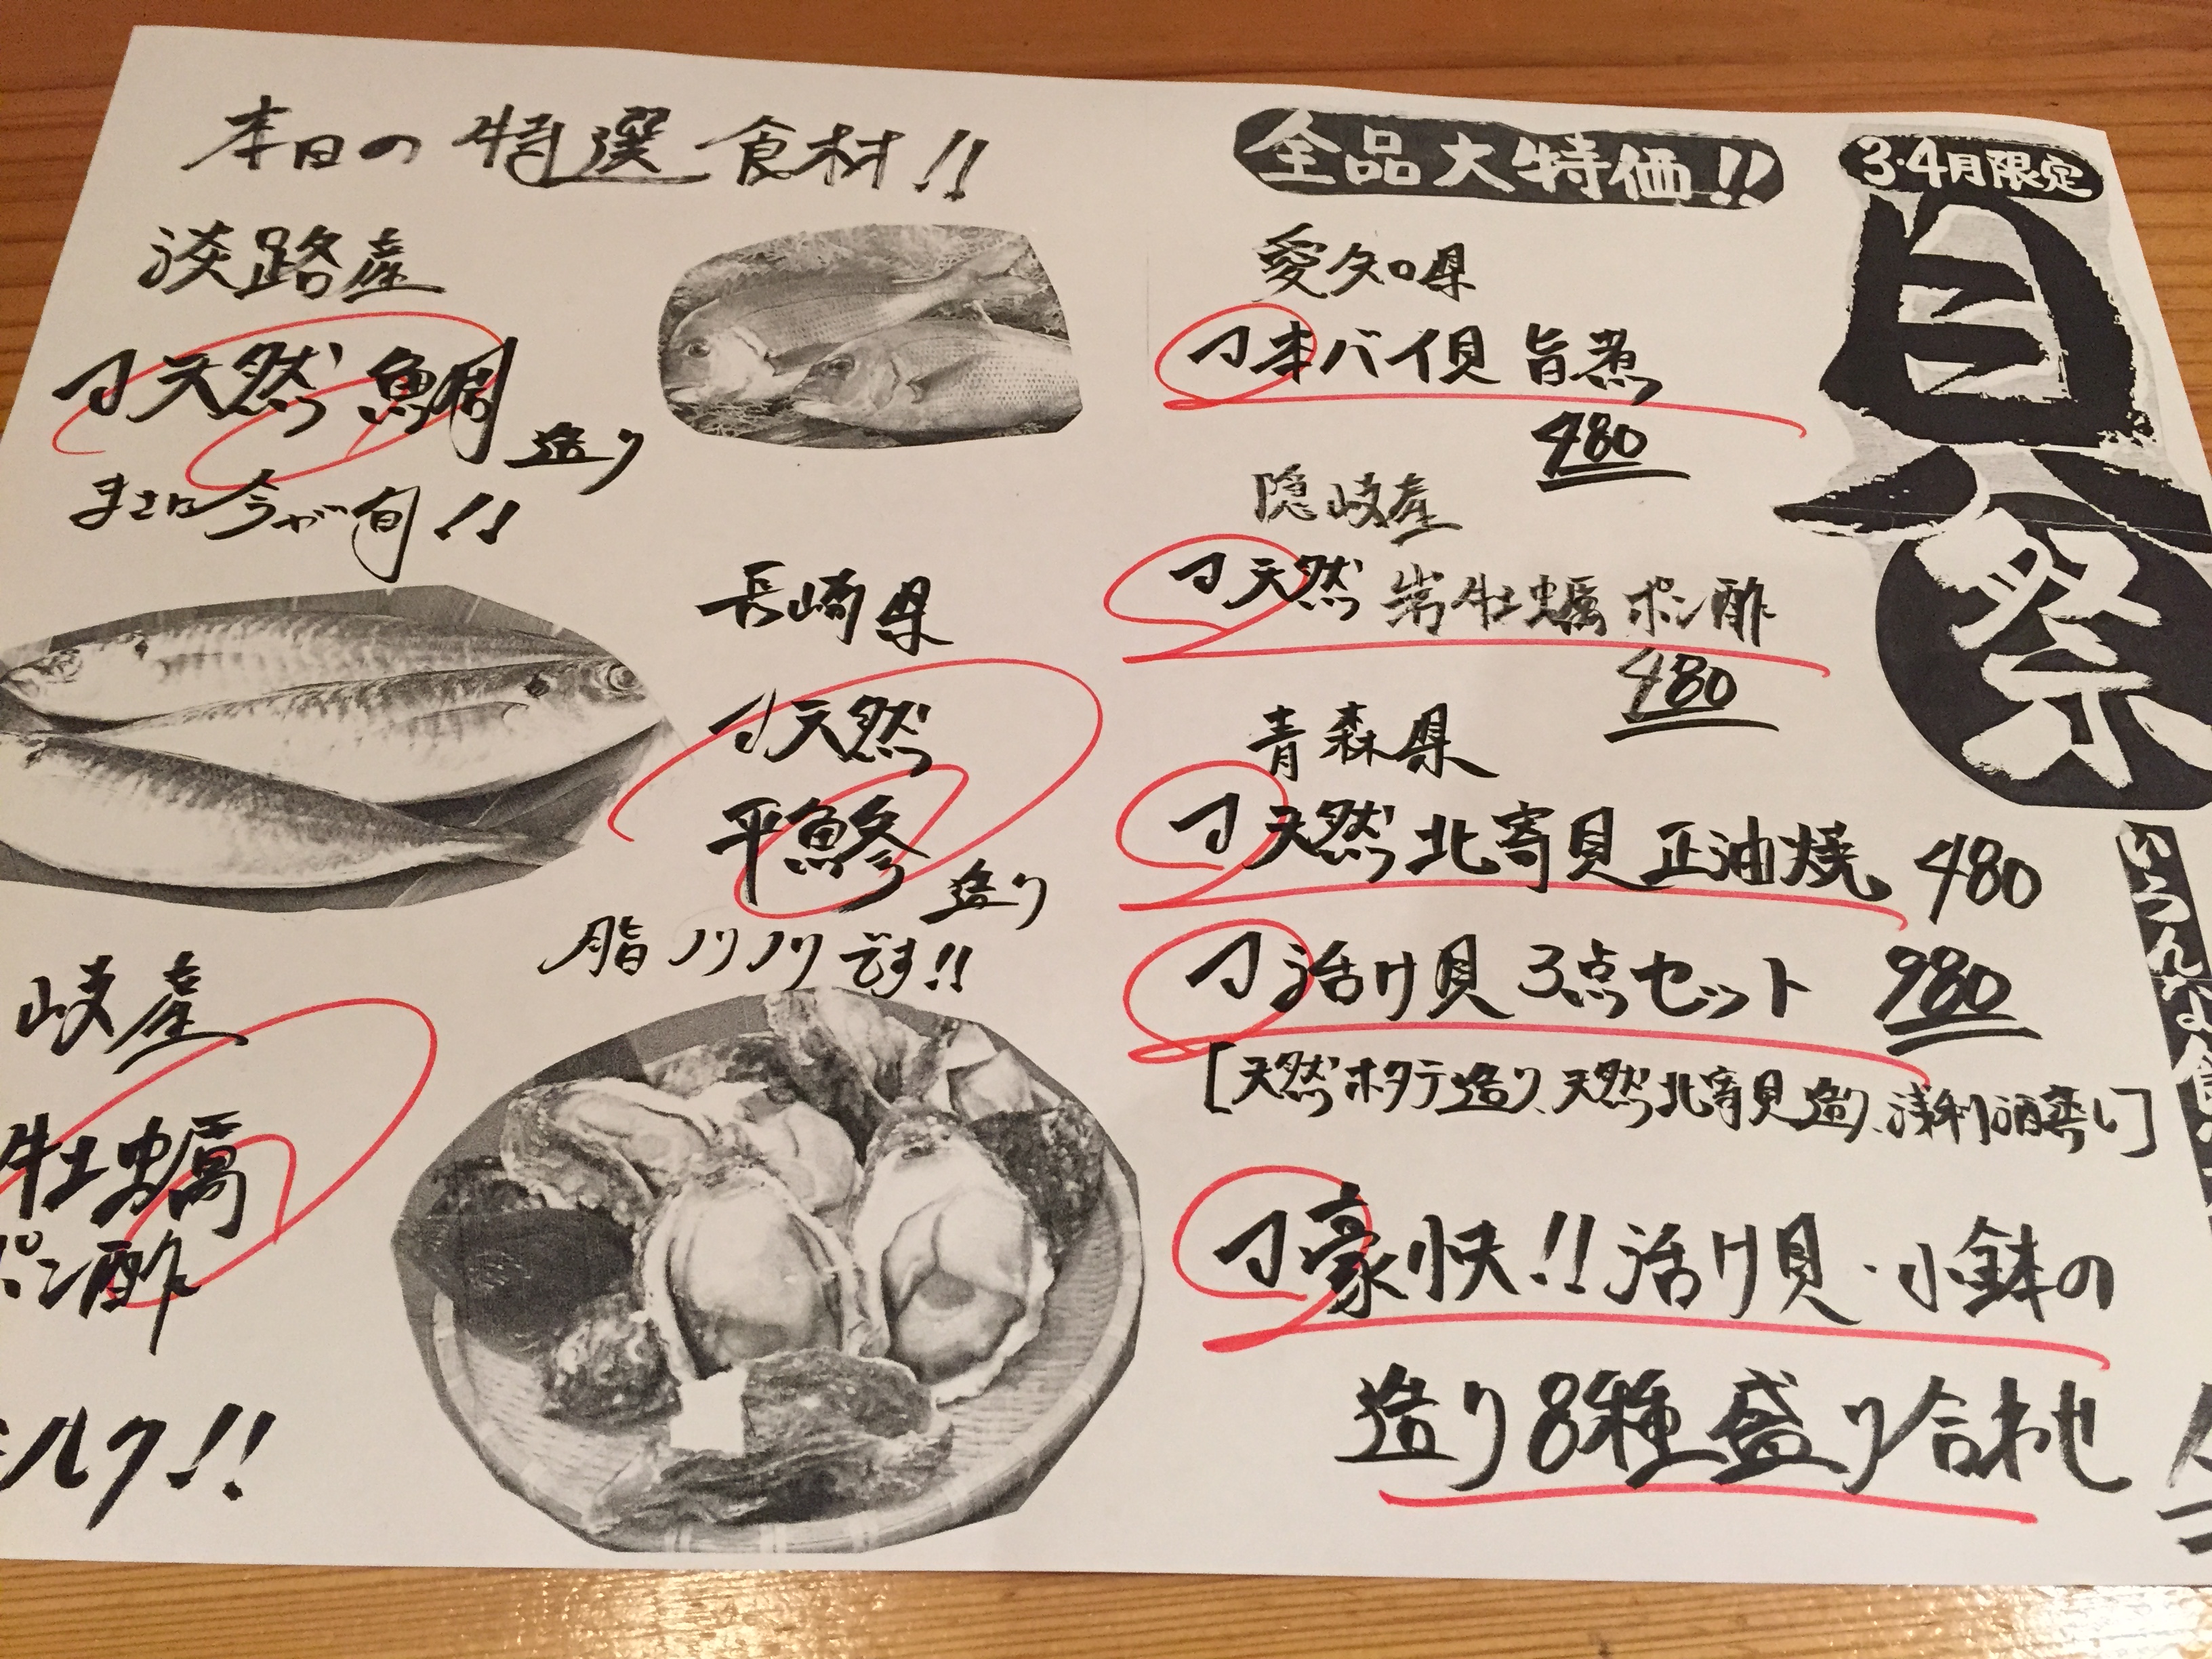 本日の特選食材!!
淡路産
天然鯛造り
まさに今が旬!!
長崎県
天然
平鯵造り
脂ノリノリです!!
岐産
牡蠣
ポン酢
ミルク!!
全品大特価!!
3・4月限定
貝祭
愛知県
本バイ貝 旨煮
480
隠岐産
天然 岩牡蠣 ポン酢
480
青森県
天然北寄貝正油焼 480
活け貝 3点セット 980
[天然ホタテ造り、天然北寄貝造り、浅利酒蒸し]
豪快!!活け貝・小鉢の
造り8種盛り合わせ